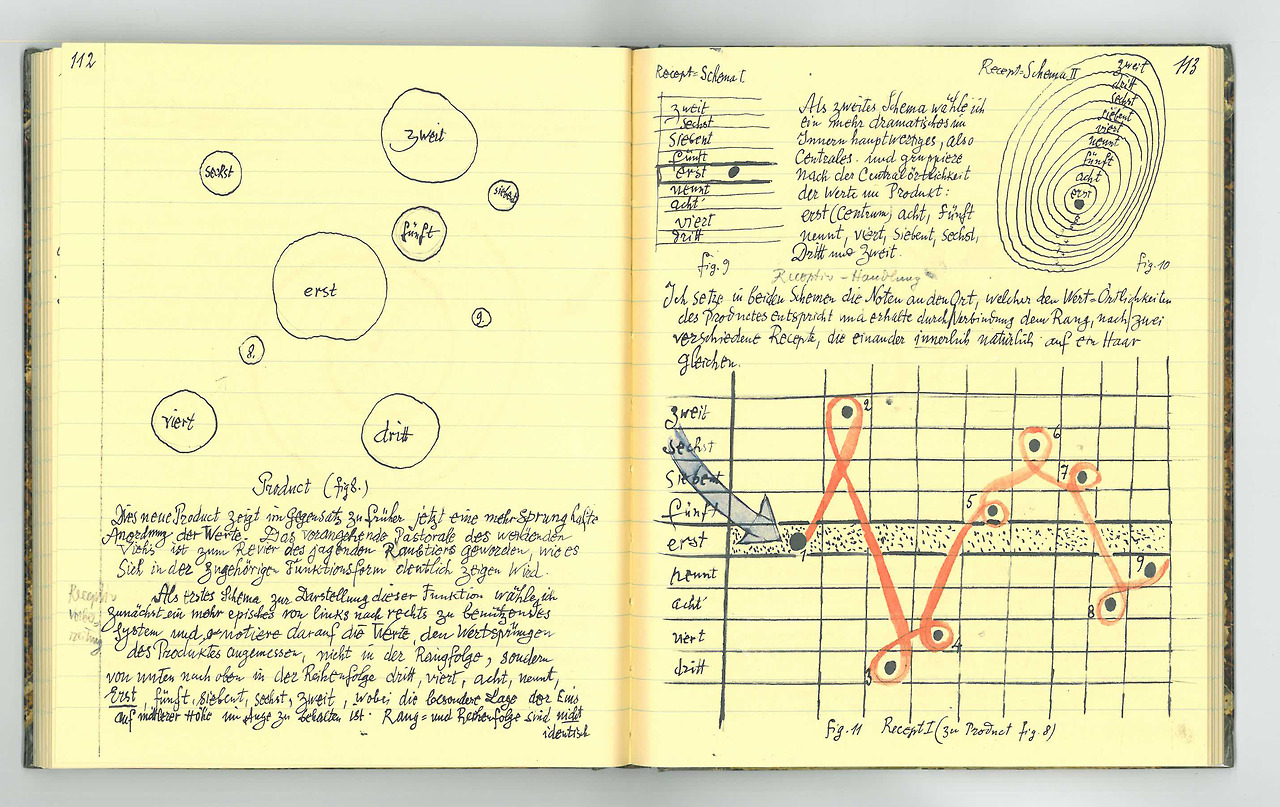 112
zweit
sechst
siebent
fünft
erst
9.
8.
viert
dritt
Product (fig 8.)
Dies neue Product zeigt im Gegensatz zu früher jetzt eine mehr sprunghafte
Anordnung der Werte. Das vorangehende Pastorale des werdenden
Viehs ist zum Revier des jagenden Raubtiers geworden, wie es
sich in der zugehörigen Funktionsform deutlich zeigen wird.
Receptiv
Als erstes Schema zur Darstellung dieser Funktion wähle ich
zunächst ein mehr episches von links nach rechts zu benützendes
System und notiere darauf die Werte, den Wertsprüngen
des Produktes angemessen, nicht in der Rangfolge, sondern
von unten nach oben in der Reihenfolge dritt, viert, acht, neunt,
Erst, fünft, siebent, sechst, zweit, wobei die besondere Lage der Eins
auf mittlerer Höhe im Auge zu behalten ist. Rang= und Reihenfolge sind nicht
identisch
113
Recept=Schema I
zweit
sechst
siebent
fünft
erst
neunt
acht
viert
dritt
fig. 9
Als zweites Schema wähle ich
ein mehr dramatisches im
Innern hauptwertiges, also
Centrales und gruppiere
nach der Centralörtlichkeit
der Werte im Produkt:
erst (Centrum) acht, fünft
neunt, viert, siebent, sechst,
Dritt und zweit.
Recept=Schema II
zweit
dritt
sechst
siebent
viert
neunt
fünft
acht
erst
fig. 10
Receptiv-Handlung
Ich setze in beiden Schemen die Noten an den Ort, welcher den Wert=Örtlichkeiten
des Productes entspricht und erhalte durch Verbindung dem Rang nach zwei
verschiedene Recepte, die einander innerlich natürlich auf ein Haar
gleichen.
zweit
sechst
siebent
fünft
erst
neunt
acht
viert
dritt
1
2
3
4
5
6
7
8
9
fig. 11 Recept I (zu Product fig. 8)